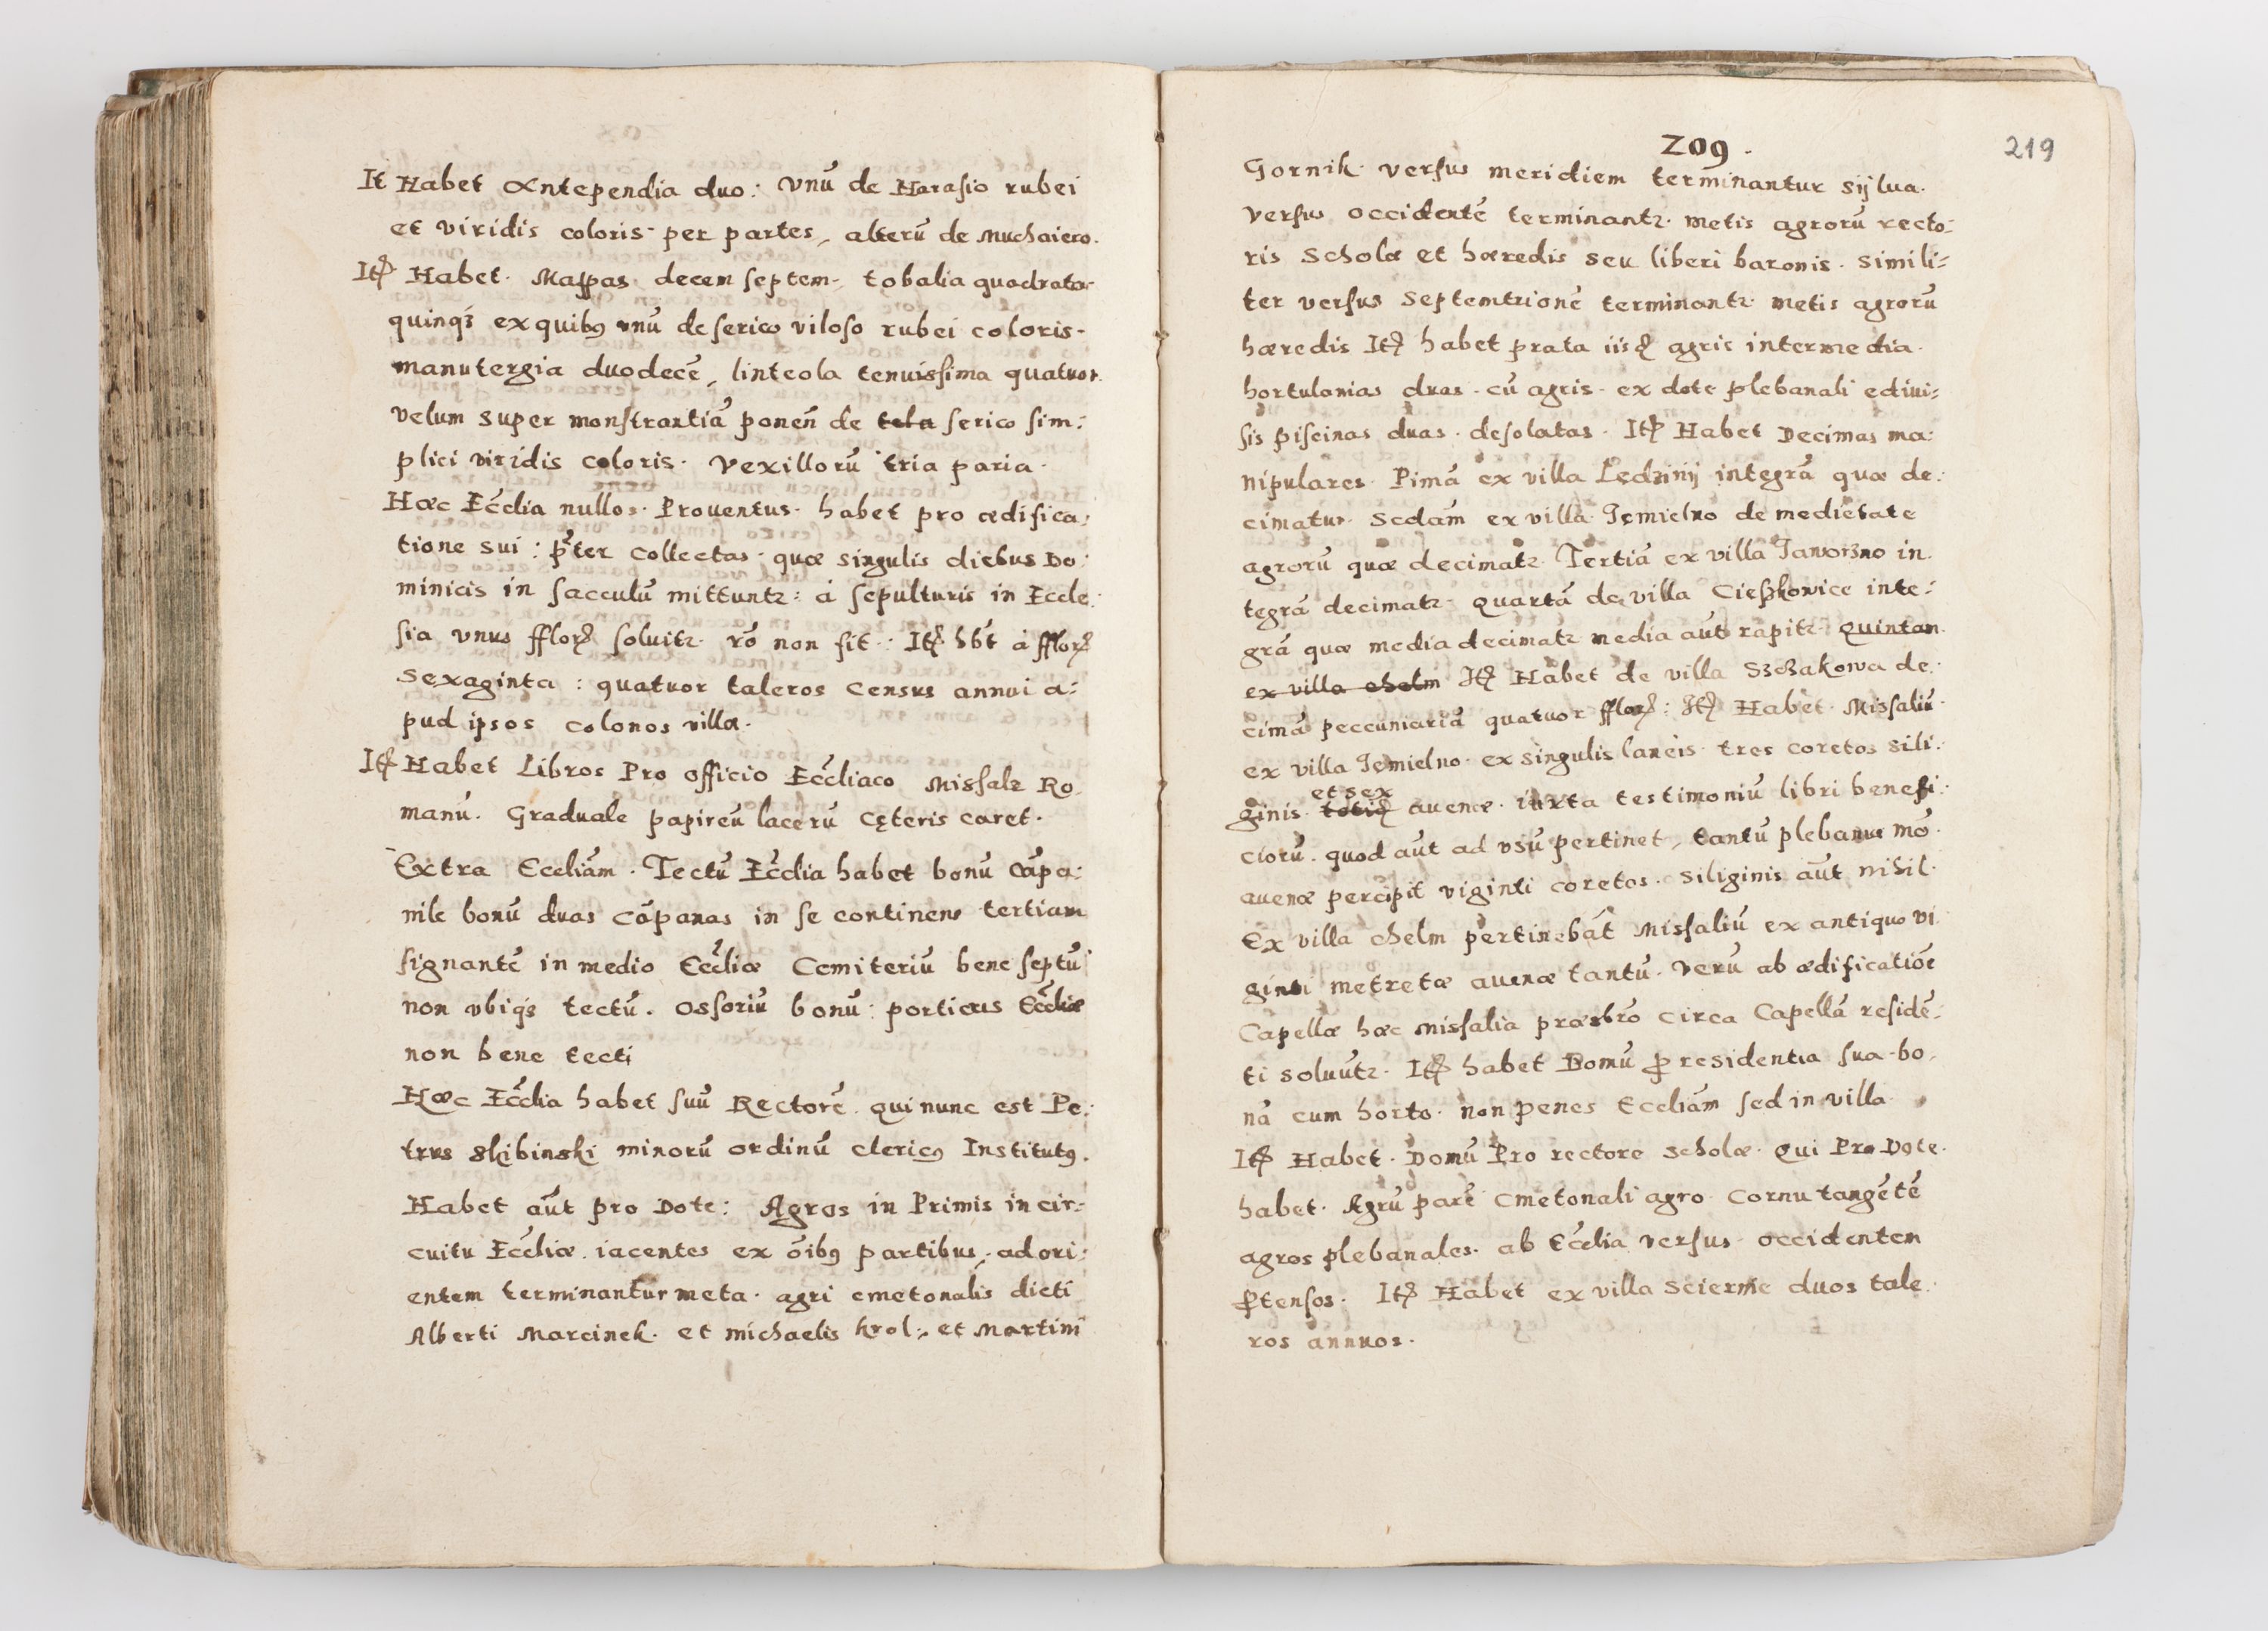 It Habet Antependia duo: Vnū de Harasio rubei
et viridis coloris per partes, alterū de Muchaiero.
Itꝫ Habet Mappas decem septem, tobalia quadrata
quinqꝫ ex quibꝯ vnū de serico viloso rubei coloris.
manutergia duodecē, linteola tenuissima quatuor.
velum super monstrantiā ponēn de tela serico sim:
plici viridis coloris. Vexillorū tria paria.
Hæc Eccl̄ia nullos Prouentus habet pro ædifica:
tione sui: p̄ter collectas quæ singulis diebus Do:
minicis in sacculū mittuntꝛ: à sepulturis in Eccle:
sia vnus fflorꝫ soluitꝛ. rō non fit: Itꝫ hb̄t à fflorꝫ
sexaginta: quatuor taleros census annui a:
pud ipsos colonos villæ.
Itꝫ Habet Libros Pro officio Eccl̄iaco Missale Ro
manū. Graduale papireū lacerū cęteris caret.
Extra Eccliām. Tectū Eccl̄ia habet bonū Cāpa:
nile bonū duas cāpanas in se continens tertiam
signantē in medio Eccl̄iæ Cemiteriū bene septū
non vbiqꝫ tectū. Ossoriū bonū: porticus Eccl̄iæ
non bene tecti
Hæc Eccl̄ia habet suū Rectorē qui nunc est Pe:
trus Skibinski minorū ordinū clericꝯ Institutꝯ.
Habet aūt pro Dote: Agros in Primis in cir:
cuitu Eccl̄iæ iacentes ex ōibꝯ partibus, ad ori:
entem terminantur meta agri cmetonalis dicti
Alberti Marcinek et Michaelis Krol, et Martini
209.
219
Gornik versus meridiem terminantur sijlua.
versus occidentē terminantꝛ metis agrorū recto:
ris Scholæ et hæredis seu liberi baronis. simili:
ter versus Septemtrionē terminantꝛ metis agrorū
hæredis Itꝫ habet prata iisdꝫ agris intermedia.
hortulanias duas cū agris ex dote plebanali ediui:
sis piscinas duas desolatas. Itꝫ Habet Decimas ma:
nipulares Pimā ex villa Lędzinij integrā quæ de:
cimatur Sedām ex villa Jęmielno de medietate
agrorū quæ decimatꝛ Tertiā ex villa Jaworzno in
tegrā decimatꝛ quartā de villa Cieszkowice inte:
grā quæ media decimatꝛ media aūt rapitꝛ Quintam
ex villa chelm Itꝫ Habet de villa Szczakowa de:
cimā peccuniariā quatuor fflorꝫ: Itꝫ Habet Missaliū
ex villa Jęmielno ex singulis laneis tres coretos sili:
et sex
ginis totidꝫ auenæ iuxta testimoniū libri benefi:
ciorū. quod aūt ad vsū pertinet, tantū plebanus mō
auenæ percipit viginti coretos. siliginis aūt nihil.
Ex villa chelm pertinebāt Missaliū ex antiquo vi
ginti metretæ auenæ tantū. Verū ab ædificatiōe
Capellæ hæc missalia præsbrō circa Capellā residē:
ti soluūtꝛ. Itꝫ habet Domū ꝓ residentia sua bo
nā cum horto non penes Eccliām sed in villa
Itꝫ Habet Domū Pro rectore scholæ qui Pro Dote.
habet Agrū parē cmetonali agro cornu tangētē
agros plebanales ab Eccl̄ia versus occidentem
ꝓtensos. Itꝫ Habet ex villa Sciernie duos tale
ros annuos.